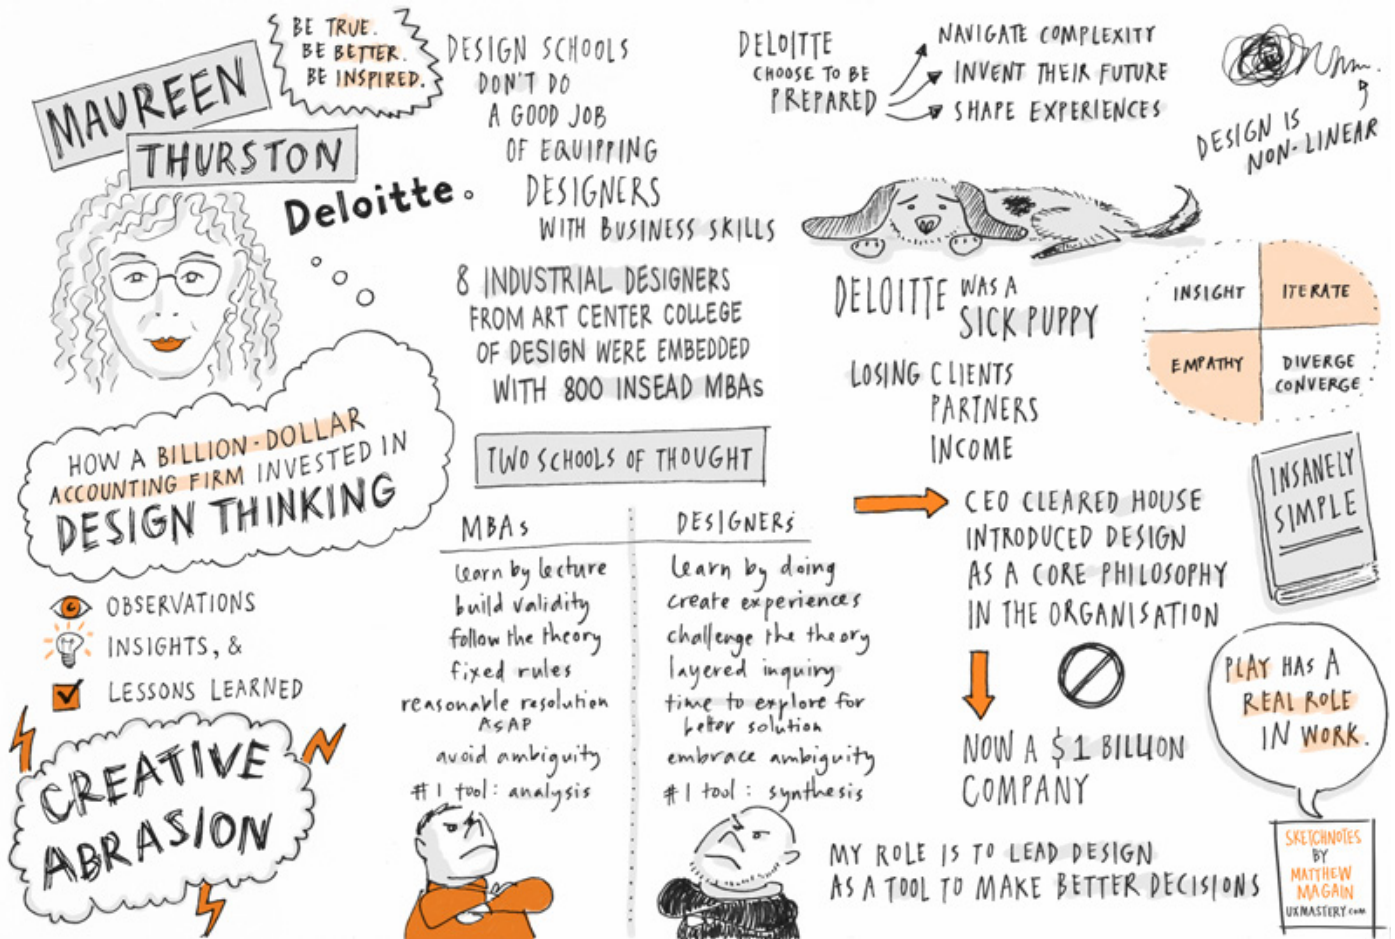 MAUREEN
THURSTON
Deloitte.
BE TRUE.
BE BETTER.
BE INSPIRED.
HOW A BILLION-DOLLAR
ACCOUNTING FIRM INVESTED IN
DESIGN THINKING
OBSERVATIONS
INSIGHTS, &
LESSONS LEARNED
CREATIVE
ABRASION
DESIGN SCHOOLS
DON'T DO
A GOOD JOB
OF EQUIPPING
DESIGNERS
WITH BUSINESS SKILLS
8 INDUSTRIAL DESIGNERS
FROM ART CENTER COLLEGE
OF DESIGN WERE EMBEDDED
WITH 800 INSEAD MBAs
TWO SCHOOLS OF THOUGHT
MBAs
learn by lecture
build validity
follow the theory
fixed rules
reasonable resolution
ASAP
avoid ambiguity
#1 tool: analysis
DESIGNERS
learn by doing
create experiences
challenge the theory
layered inquiry
time to explore for
better solution
embrace ambiguity
#1 tool: synthesis
DELOITTE
CHOOSE TO BE
PREPARED
NAVIGATE COMPLEXITY
INVENT THEIR FUTURE
SHAPE EXPERIENCES
DESIGN IS
NON-LINEAR
DELOITTE WAS A
SICK PUPPY
LOSING CLIENTS
PARTNERS
INCOME
INSIGHT
ITERATE
EMPATHY
DIVERGE
CONVERGE
CEO CLEARED HOUSE
INTRODUCED DESIGN
AS A CORE PHILOSOPHY
IN THE ORGANISATION
INSANELY
SIMPLE
NOW A $1 BILLION
COMPANY
PLAY HAS A
REAL ROLE
IN WORK.
MY ROLE IS TO LEAD DESIGN
AS A TOOL TO MAKE BETTER DECISIONS
SKETCHNOTES
BY
MATTHEW
MAGAIN
UXMASTERY.com